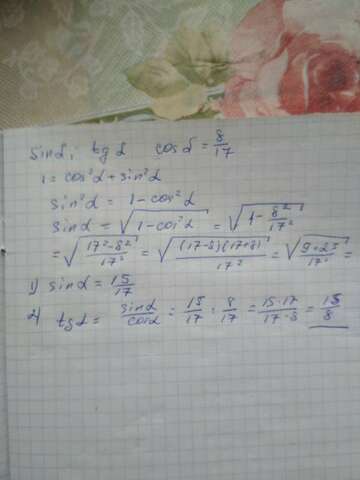 sin α; tg α cos α = 8/17
1 = cos²α + sin²α
sin²α = 1 - cos²α
sin α = √(1 - cos²α) = √(1 - 8²/17²)
= √((17² - 8²)/17²) = √((17-8)(17+8)/17²) = √(9·25/17²) =
1) sin α = 15/17
2) tg α = sin α/cos α = 15/17 : 8/17 = 15·17/17·8 = 15/8